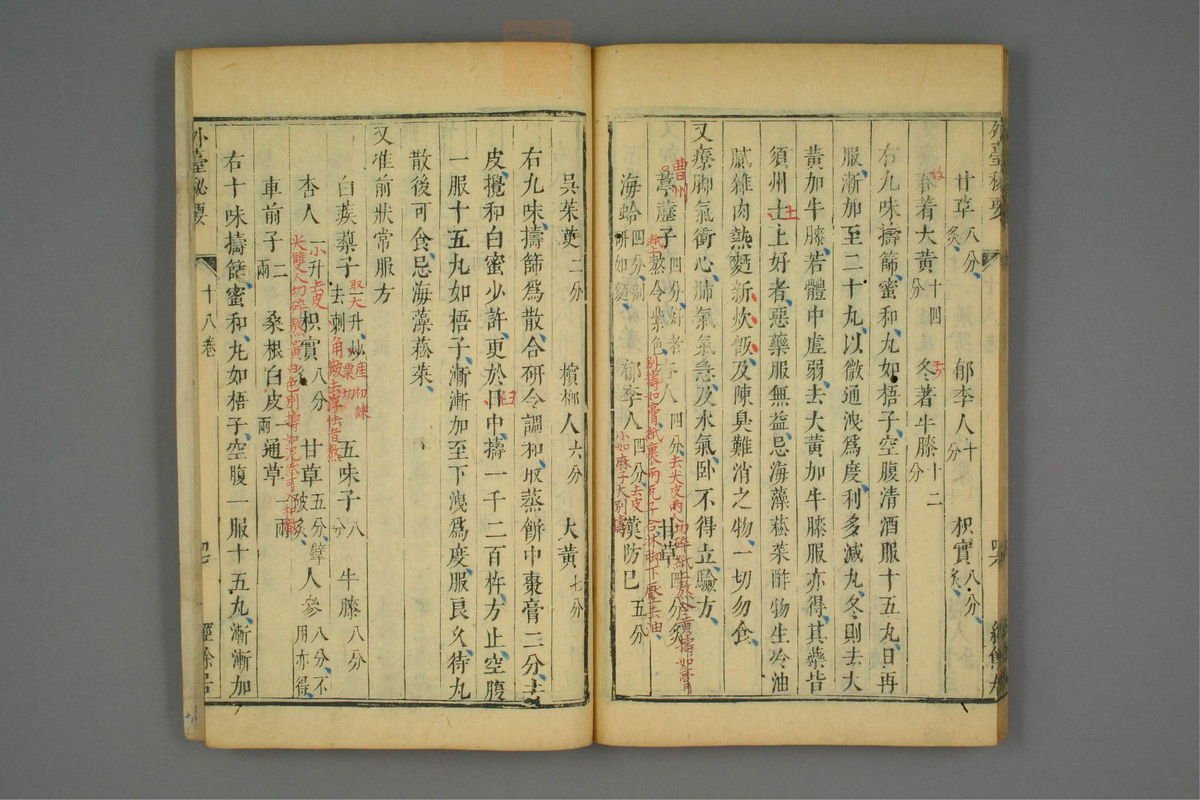 外臺秘要
甘草八分炙 郁李人十分 枳實八分炙
春着大黃十四分 冬著牛膝十二分
右九味擣篩蜜和丸如梧子空腹清酒服十五丸日再
服漸加至二十九以微通洩爲度利多減丸冬則去大
黃加牛膝若體中虛弱去大黃加牛膝服亦得其藥皆
須州土上好者惡藥服無益忌海藻菘菜酢物生冷油
膩雜肉熱麵新炊飯及陳臭難消之物一切勿食
又療脚氣衝心肺氣氣急及水氣臥不得立驗方
曹州
葶藶子四分好者
紙上熬令紫色
杏人四分去尖皮兩人切碎紙上熬令黃擣如膏
甘草四分炙
海蛤四分別研如麵 郁李人四分去皮 漢防已五分
吳茱萸二分 檳榔人六分 大黃七分
右九味擣篩爲散合研令調和取蒸餅中棗膏二分去
皮攪和白蜜少許更於臼中擣一千二百杵方止空腹
一服十五丸如梧子漸漸加至下洩爲度服良久待丸
散後可食忌海藻菘菜
又准前狀常服方
白蒺藜子去刺 五味子八分 牛膝八分
杏人一小升去皮 枳實八分炙 甘草五分擘破炙 人參八分不用亦得
車前子二兩 桑根白皮一兩 通草一兩
右十味擣篩蜜和丸如梧子空腹一服十五丸漸漸加
外臺秘要
十八卷
經餘居